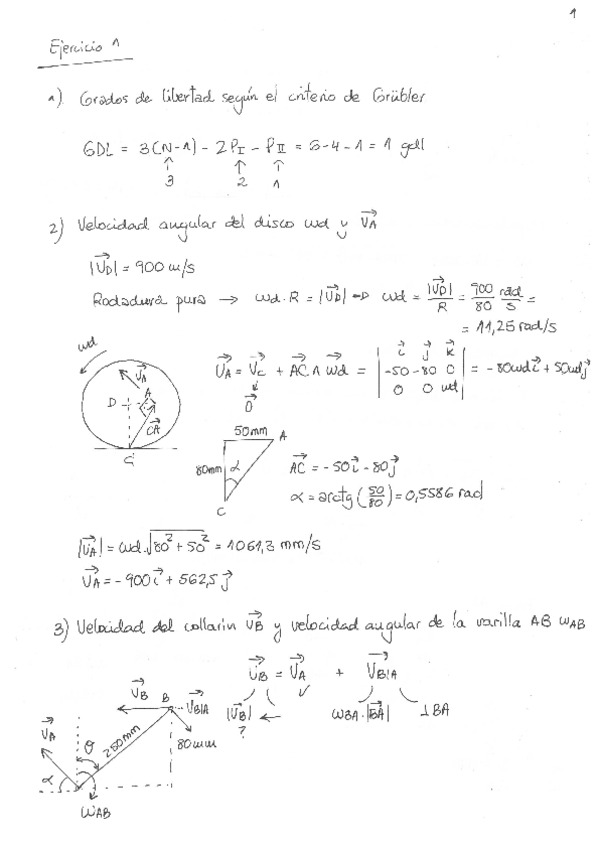 1
Ejercicio 1
1) Grados de libertad según el criterio de Grübler
GDL = 3(N-1) - 2PI - PII = 6-4-1 = 1 gdl
↑ ↑ ↑
3 2 1
2) Velocidad angular del disco ωd y VA
|VD| = 900 m/s
Rodadura pura → ωd·R = |VD| → ωd = |VD|/R = 900/80 rad/s =
= 11,25 rad/s
ωd
VA = VC + AC ∧ ωd = | i j k ; -50 -80 0 ; 0 0 ωd | = -80ωd i + 50ωd j
0
VA
A
D
CA
C
50mm
A
80mm
α
C
AC = -50 i - 80 j
α = arctg (50/80) = 0,5586 rad
|VA| = ωd·√80² + 50² = 1061,3 mm/s
VA = -900 i + 562,5 j
3) Velocidad del collarín VB y velocidad angular de la varilla AB ωAB
VB = VA + VB/A
|VB| ← ✓ ωBA·|BA| ⊥ BA
?
VB
B
VB/A
VA
θ
250mm
80mm
α
ωAB